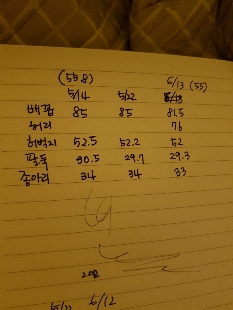 (55.8) 6/13 (55)
5/14 5/22
배꼽 85 85 81.5
허리 76
허벅지 52.5 52.2 52
팔뚝 30.5 29.7 29.3
종아리 34 34 33
5/22 6/12